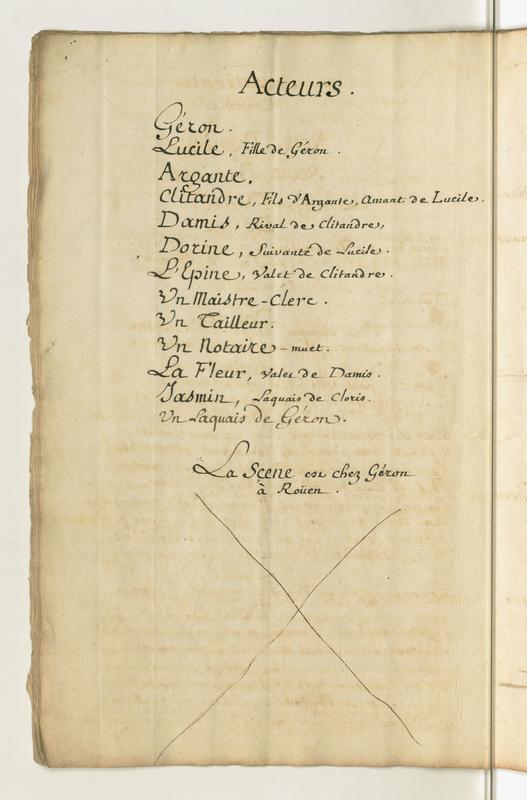 Acteurs.
Géron.
Lucile, Fille de Géron.
Argante.
Clitandre, Fils d'Argante, Amant de Lucile.
Damis, Rival de Clitandre,
Dorine, Suivante de Lucile.
L'Epine, Valet de Clitandre.
Vn Maistre-Clerc.
Vn Tailleur.
Vn Notaire-muet.
La Fleur, Valet de Damis.
Jasmin, Laquais de Cloris.
Vn Laquais de Géron.
La Scene est chez Géron
à Roüen.